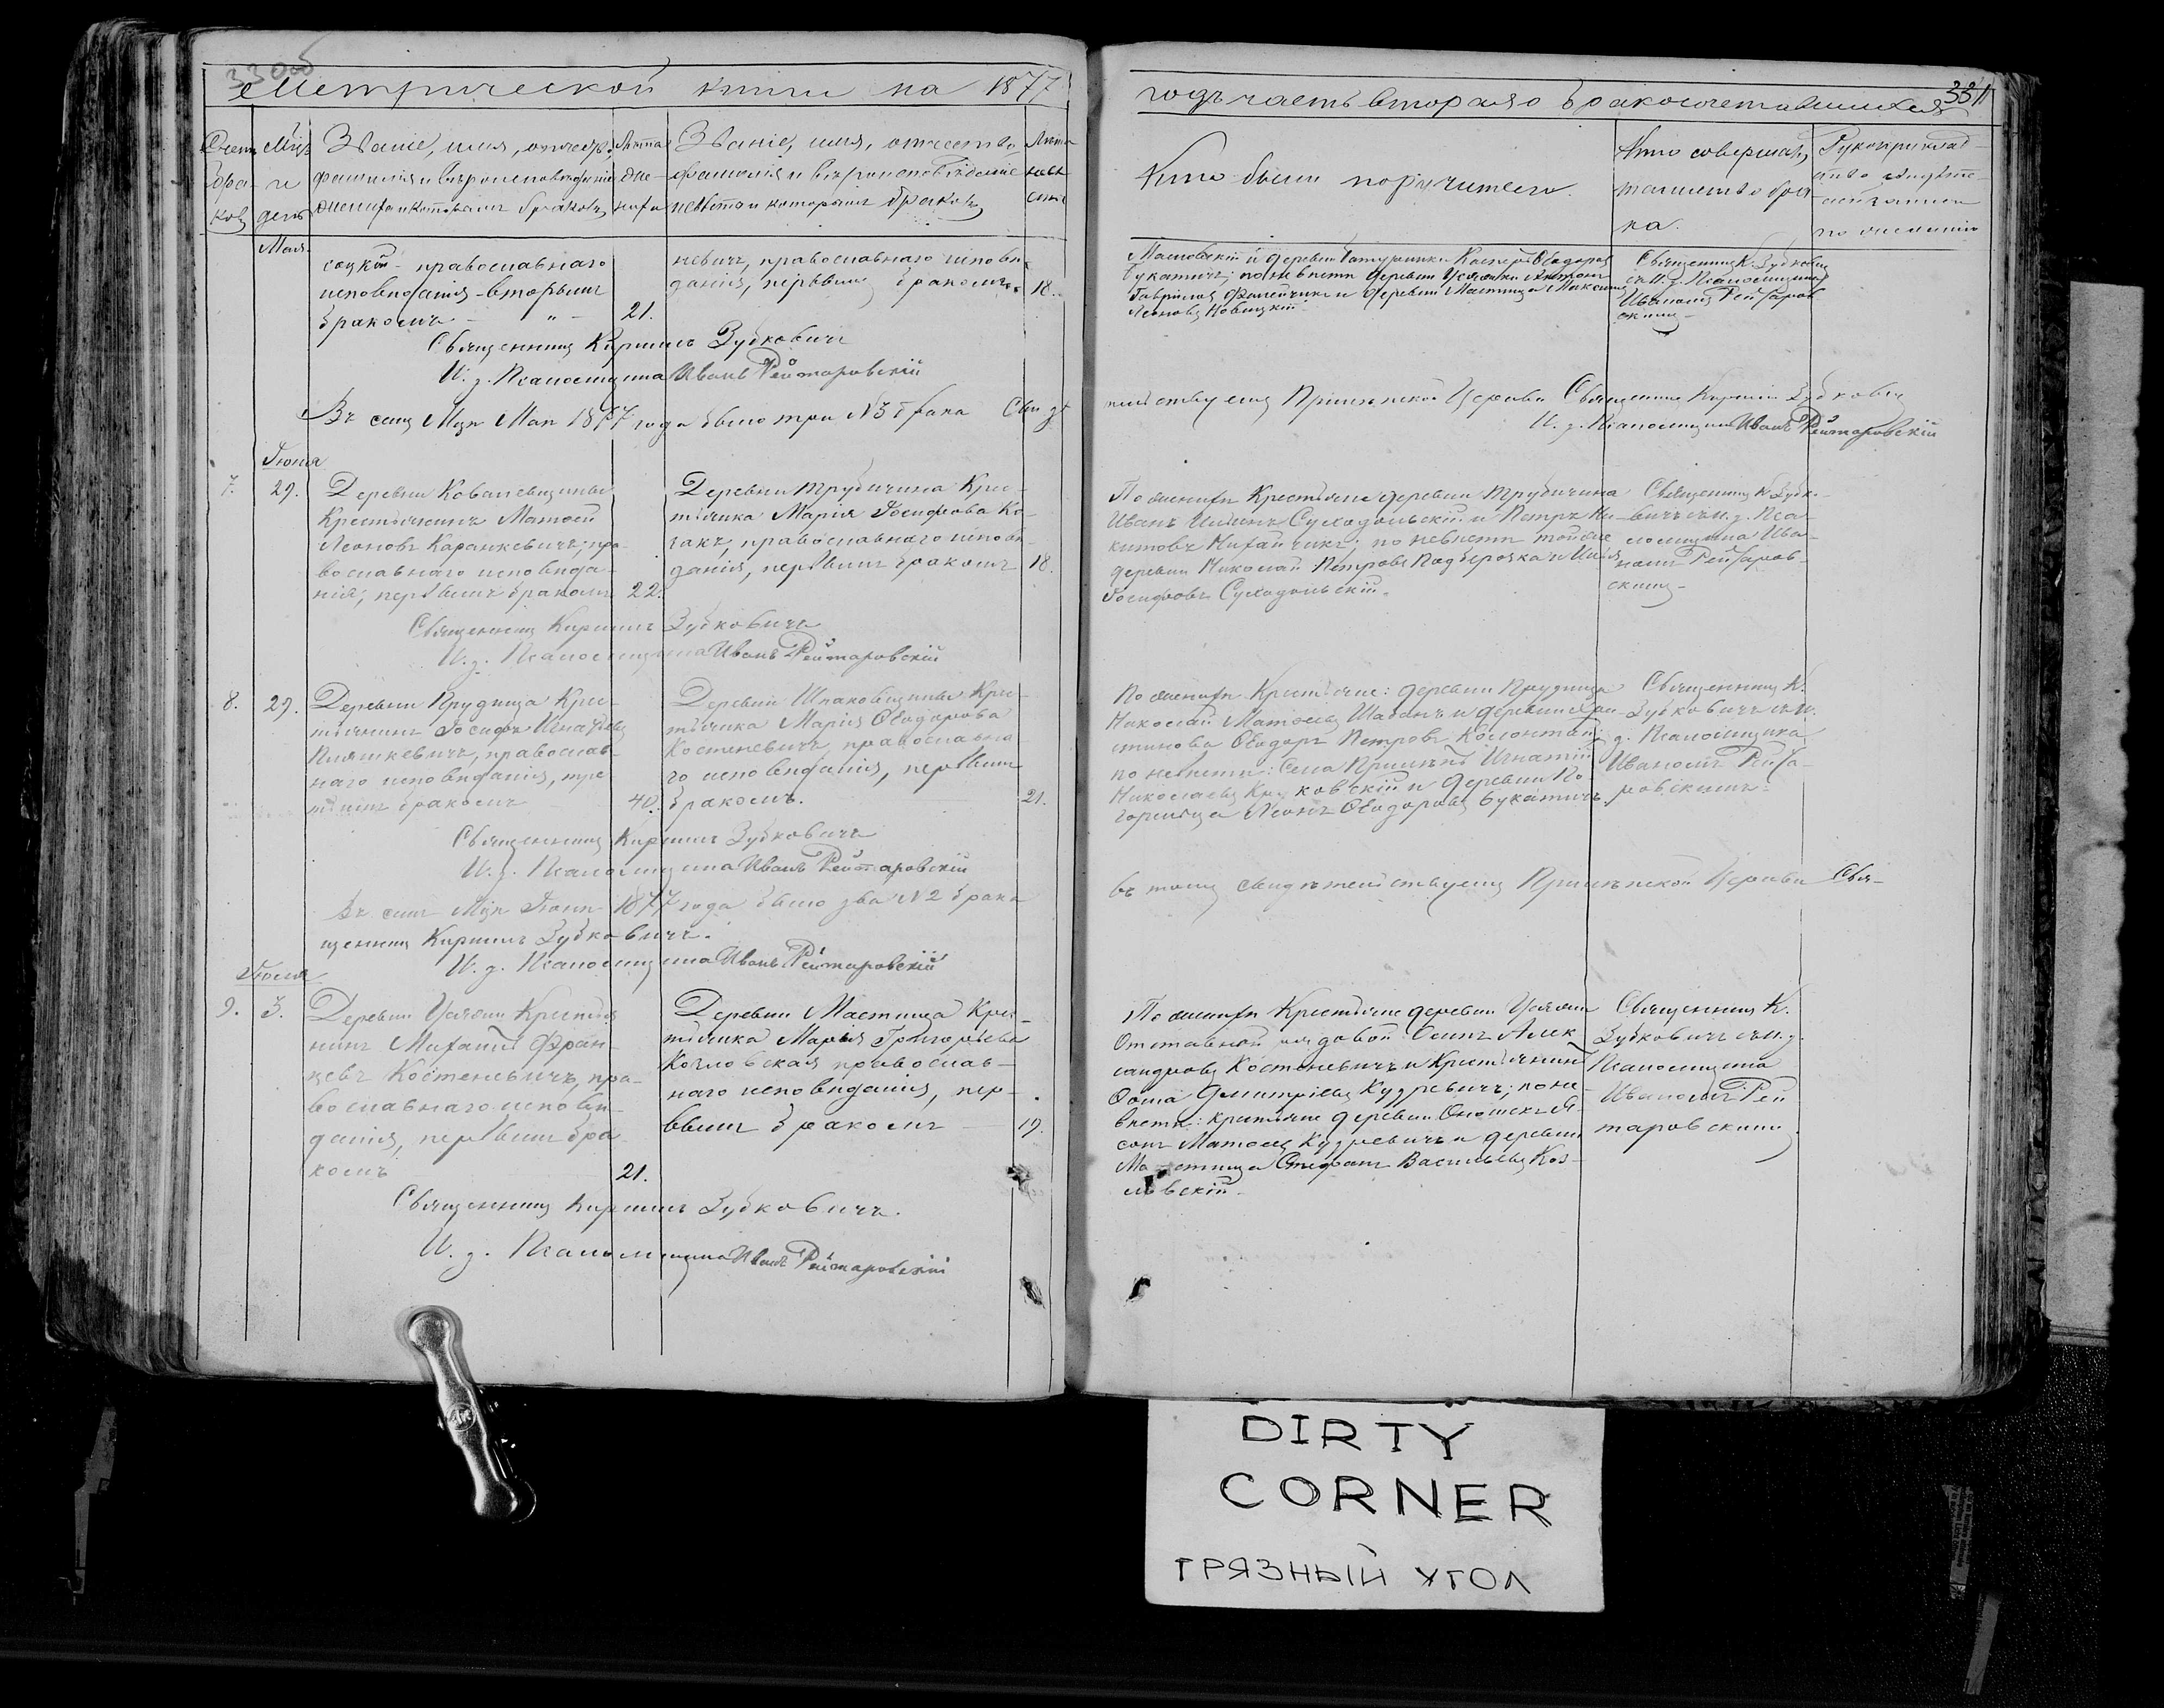 330об
Метрической книги на 1877
Счетъ
бра-
ковъ
Мѣц.
и
день
Званіе, имя, отчеств.,
фамилія и вѣроисповѣданіе
жениха и которымъ бракомъ
Лѣта
же-
ниха
Званіе, имя, отчество,
фамилія и вѣроисповѣданіе
невѣсты и которымъ бракомъ
Лѣта
невѣ
сты
Мая.
православнаго
исповѣданія - вторымъ
бракомъ - " - 21.
невичъ, православнаго исповѣ-
данія, первымъ бракомъ. 18.
Священникъ Кириллъ Зубковичъ
И. д. Псаломщика Иванъ Рейтаровскій
Въ семъ Мцѣ Маѣ 1877 года было три №3 брака
Іюня
7. 29. Деревни Ковалевщины
Крестьянинъ Матѳей
Леоновъ Каранкевичъ; пра-
вославнаго исповѣда-
нія; первымъ бракомъ 22.
Деревни Трубичина Крес-
тьянка Марія Іосифова Ко-
закъ, православнаго исповѣ-
данія, первымъ бракомъ 18.
Священникъ Кириллъ Зубковичъ
И. д. Псаломщика Иванъ Рейтаровскій
8. 29. Деревни Прудища Крес-
тьянинъ Іосифъ Игнатьевъ
православ-
наго исповѣданія, тре
тьимъ бракомъ 40.
Деревни Шпаковщины Крес-
тьянка Марія Ѳеодорова
Костеневичъ, православна
го исповѣданія, первымъ
бракомъ. 21.
Священникъ Кириллъ Зубковичъ
И. д. Псаломщика Иванъ Рейтаровскій
Въ семъ Мцѣ Іюнѣ 1877 года было два №2 брака
щенникъ Кириллъ Зубковичъ.
И. д. Псаломщика Иванъ Рейтаровскій
Іюля
9. 3. Деревни Усяжи Крестья
нинъ Михаилъ Фран-
цевъ Костеневичъ, пра-
вославнаго исповѣ-
данія, первымъ бра-
комъ 21.
Деревни Мастища Крес-
тьянка Марія Григорьева
Козловская православ-
наго исповѣданія, пер-
вымъ бракомъ 19.
Священникъ Кириллъ Зубковичъ.
И. д. Псаломщика Иванъ Рейтаровскій
331
годъ часть вторая о бракосочетавшихся
Кто были поручители
Кто совершалъ
таинство бра
ка.
Рукоприклад-
ство свидѣте-
по желанію
Ѳеодоровъ
Букатичъ; по невѣстѣ деревни
Гавріиловъ и деревни Мастища Максимъ
Леоновъ Новицкій
Священникъ К. Зубковичъ
съ И. д. Псаломщика
Иваномъ Рейтаров
скимъ -
Церкви Священникъ Кириллъ Зубковичъ
И. д. Псаломщика Иванъ Рейтаровскій
По женихѣ Крестьяне деревни Трубичина
Иванъ Суходольскій и Петръ Ни-
китовъ Михальчикъ; по невѣстѣ той же
деревни Николай Петровъ Подберозка и
Іосифовъ Суходольскій.
Священникъ К. Зубко-
вичъ съ И. д. Пса-
ломщика Ива-
номъ Рейтаров-
скимъ -
По женихѣ Крестьяне: деревни Прудища
Николай Матѳеевъ и деревни
Ѳеодоръ Петровъ
по невѣстѣ: Села Игнатій
Николаевъ и деревни По-
горѣлца Леонъ Ѳеодоровъ Букатичъ.
Священникъ К.
Зубковичъ съ И.
д. Псаломщика
Иваномъ Рейта-
ровскимъ.
въ томъ свидѣтельствуемъ Церкви Свя-
По женихѣ Крестьяне деревни Усяжи
Отставной рядовой Осипъ Алек
сандровъ Костеневичъ и Крестьянинъ
Ѳома Димитріевъ Кудревичъ; по не-
вѣстѣ: крестьяне деревни
Матѳеевъ Кудревичъ и деревни
Мастища Стефанъ Васильевъ Коз-
ловскій -
Священникъ К.
Зубковичъ съ И. д.
Псаломщика
Иваномъ Рей
таровскимъ.
DIRTY
CORNER
ГРЯЗНЫЙ УГОЛ